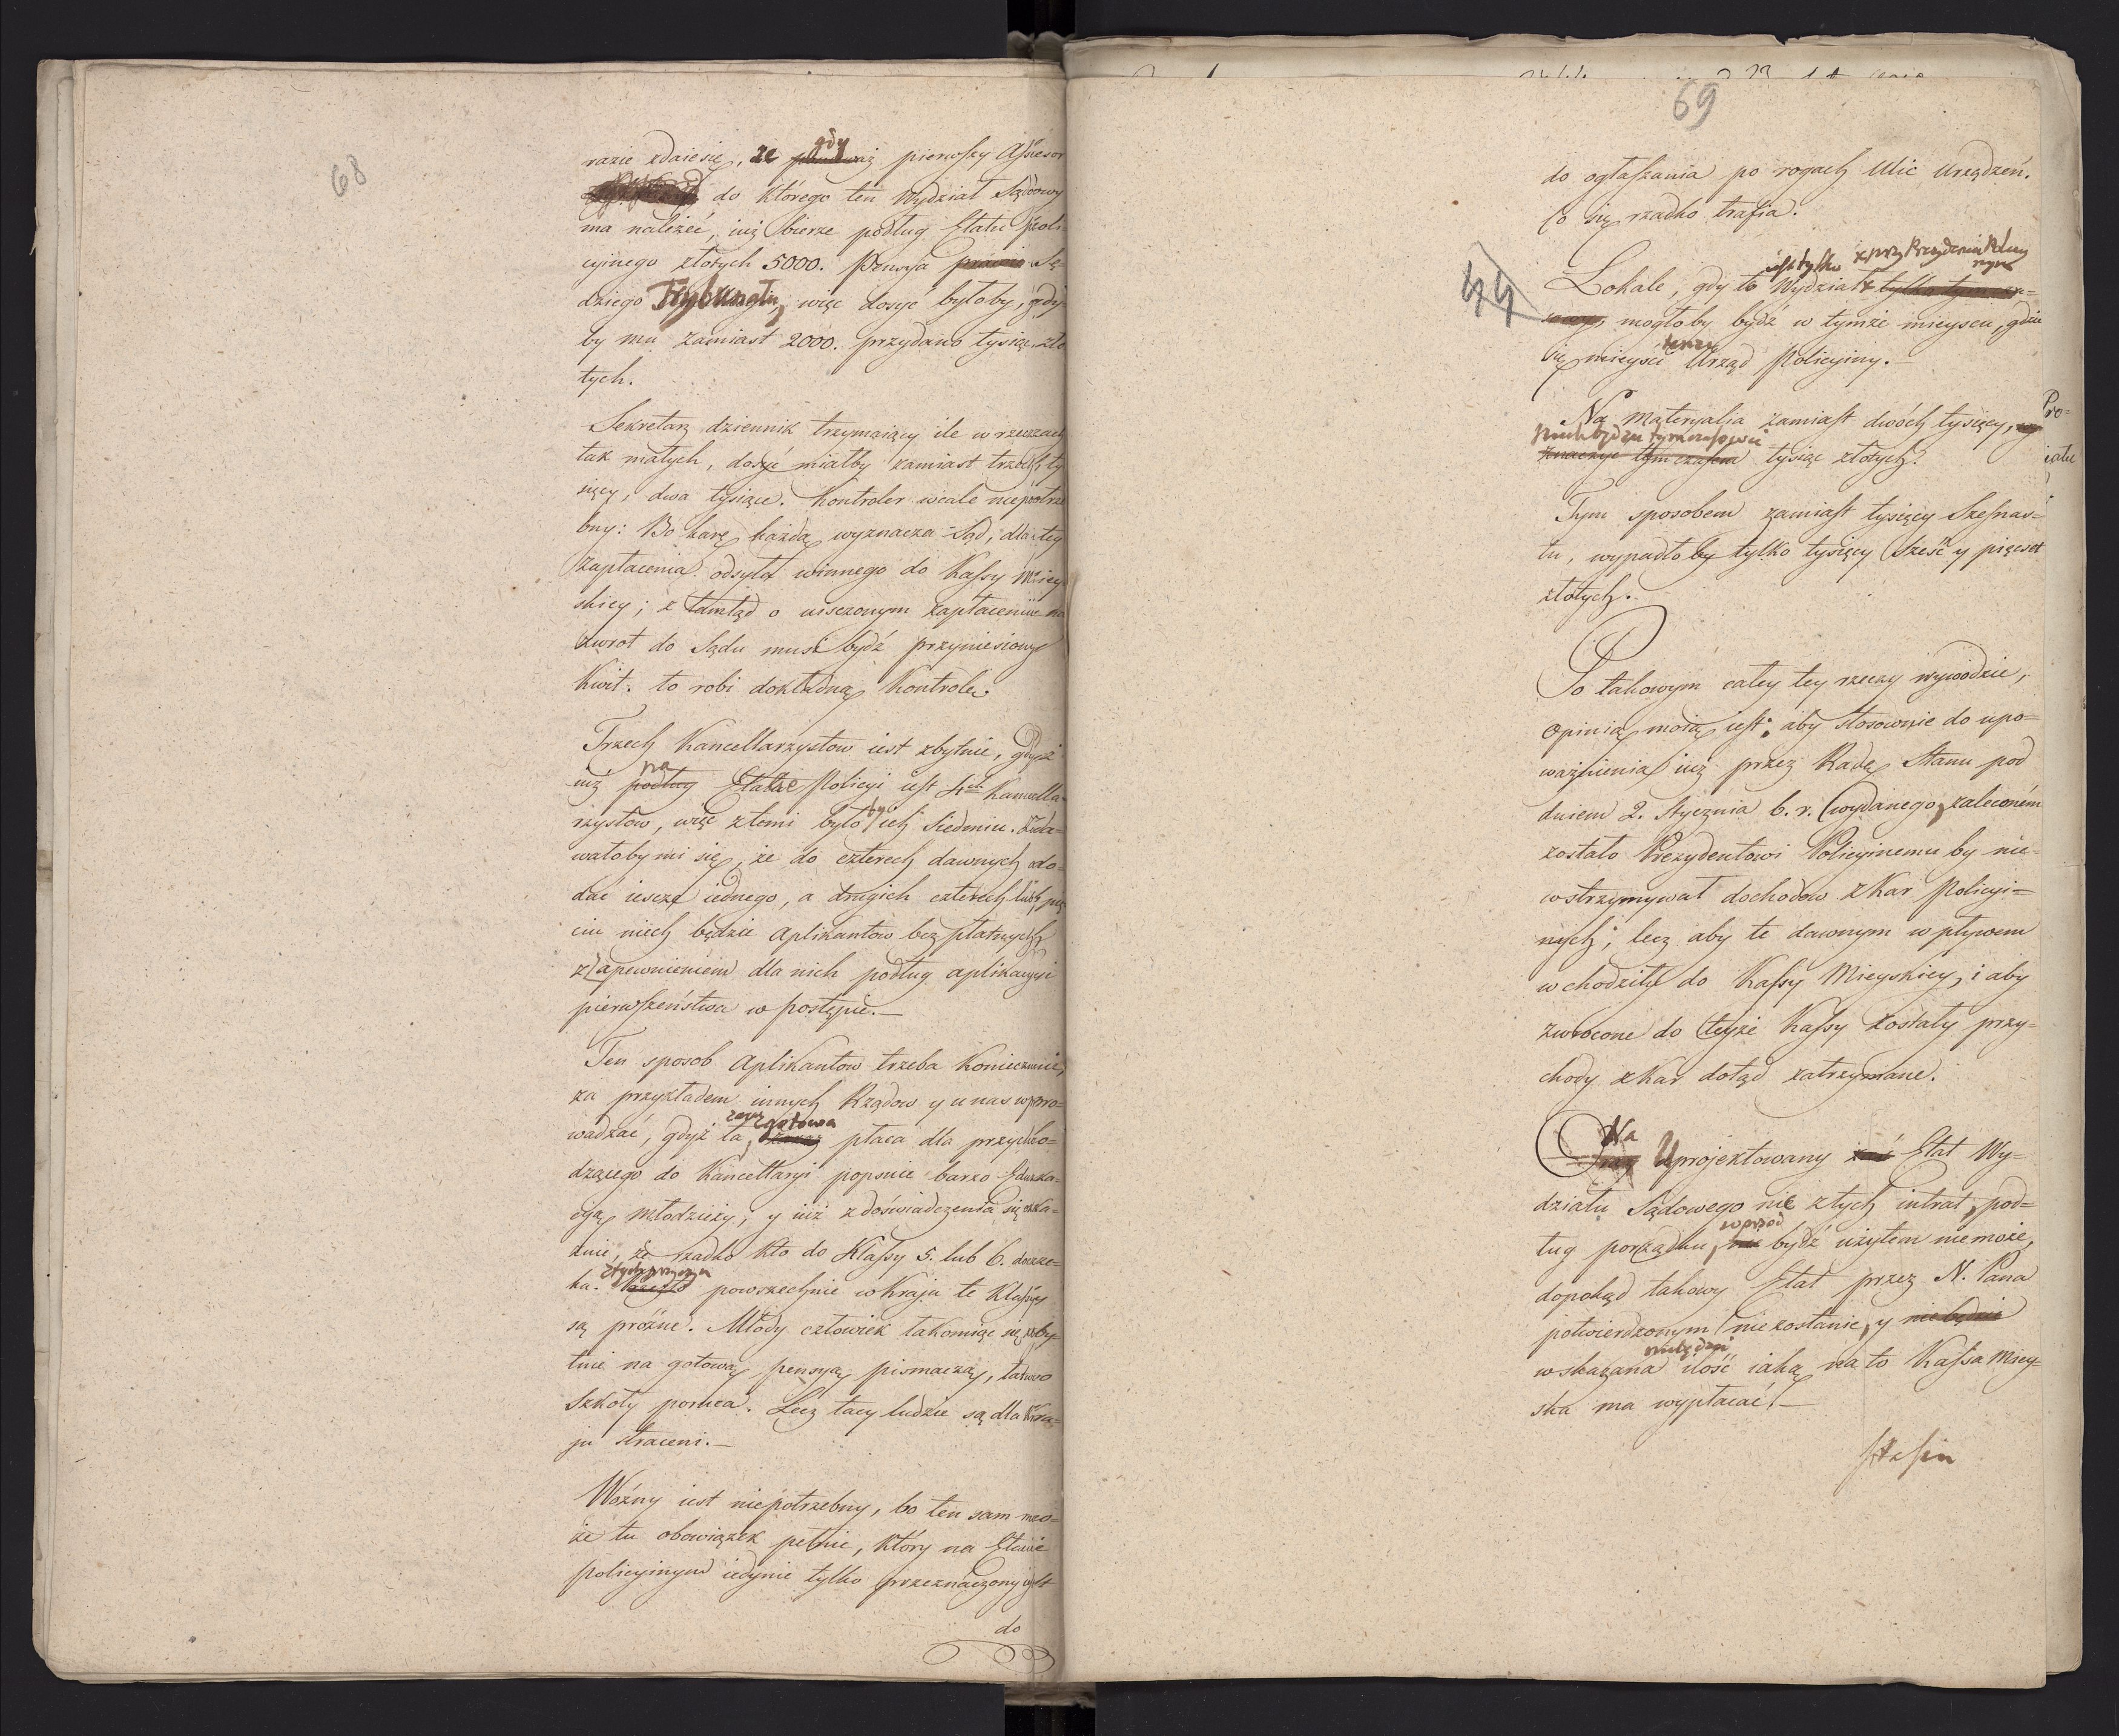 68
razie zdaie się, że gdy pierwszy Assessor
do którego ten Wydział Sądowy
ma należeć, iuż bierze podług Etatu Poli-
cyinego złotych 5000. Pensya prawie Sę-
dziego Trybunału, więc dosyć byłoby, gdy
by mu zamiast 2000. przydano tysiąc zło
tych.
Sekretarz dziennik trzymaiący ile w rzeczach
tak małych, dosyć miałby zamiast trzech ty
sięcy, dwa tysiące. Kontroler wcale niepotrze
bny: Bo karę każdą wyznacza Sąd; dla tey
zapłacenia odsyła winnego do Kassy Miey
skiey; z tamtąd o uisczonym zapłaceniu na
zwrot do Sądu musi bydź przyniesiony
Kwit. to robi dokładną Kontrolę.
Trzech Kancellarzystow iest zbytnie, gdyż
na
iuż podług Etacie Policyi iest 4ch Kancella-
rzystow, więc z temi było by ich siedmiu. Zda-
wałoby mi się, że do czterech dawnych do-
dać iescze iednego, a drugich czterech lub pię
ciu niech będzie Aplikantow bez płatnych
z zapewnieniem dla nich podług aplikacyi
pierwszeństwa w postępie.—
Ten sposob Aplikantow trzeba koniecznie,
za przykładem innych Rządow y u nas wpro-
wadzać, gdyż ta zaraz gotowa płaca dla przycho-
dzącego do Kancellaryi popsuie barzo Eduka-
cyą młodzieży; y iuż z doświadczenia się oka-
zuie, że rzadko kto do Klassy 5. lub 6. docze-
z tych przyczyn
ka. powszechnie w Kraju te Klassy
są próżne. Młody człowiek łakomiąc się zby-
tnie na gotową pensyą pismaczą, łatwo
Szkoły porzuca. Lecz tacy ludzie są dla Kra-
ju straceni.—
Woźny iest niepotrzebny, bo ten sam mo-
że tu obowiązek pełnić, który na Etacie
Policyinym iedynie tylko przeznaczony iest
do
69
do ogłaszania po rogach Ulic Urządzeń.
Co się rzadko trafia.
iest tylko
Lokale, gdy to Wydział
mogłoby bydź w tymże mieyscu, gdzie
teraz
się mieyści Urząd Policyiny.—
Na Materyalia zamiast dwóch tysięcy,
niech będzie tymczasowie
znaczyć tymczasem tysiąc złotych.
Tym sposobem zamiast tysięcy Szesnas-
tu, wypadło by tylko tysięcy Sześć y pięcset
złotych.
Po takowym całey tey rzeczy wywodzie,
opinią moią iest: aby stosownie do upo-
ważnienia iuż przez Radę Stanu pod
dniem 2. Stycznia b. r. wydanego, zaleconém
zostało Prezydentowi Policyinemu by nie-
wstrzymywał dochodow z Kar Policyi-
nych; lecz aby te dawnym wpływem
wchodziły do Kassy Mieyskiey, i aby
zwrocone do teyże Kassy zostały przy-
chody z Kar dotąd zatrzymane.
Na
Uprojektowany zaś Etat Wy-
działu Sądowego nic z tych intrat, pod-
wprzód
ług porządku, bydź użytem nie może,
dopokąd takowy Etat przez N. Pana
potwierdzonym nie zostanie, y nie będzie
nie będzie
wskazana ilość iaką na to Kassa Miey-
ska ma wypłacać.—
Stasic